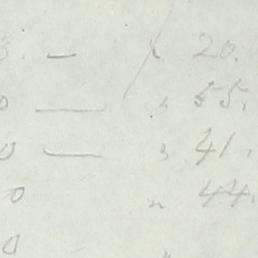 3. — " 20.
0 — " 55.
0 — " 41.
0 " 44.
0 "